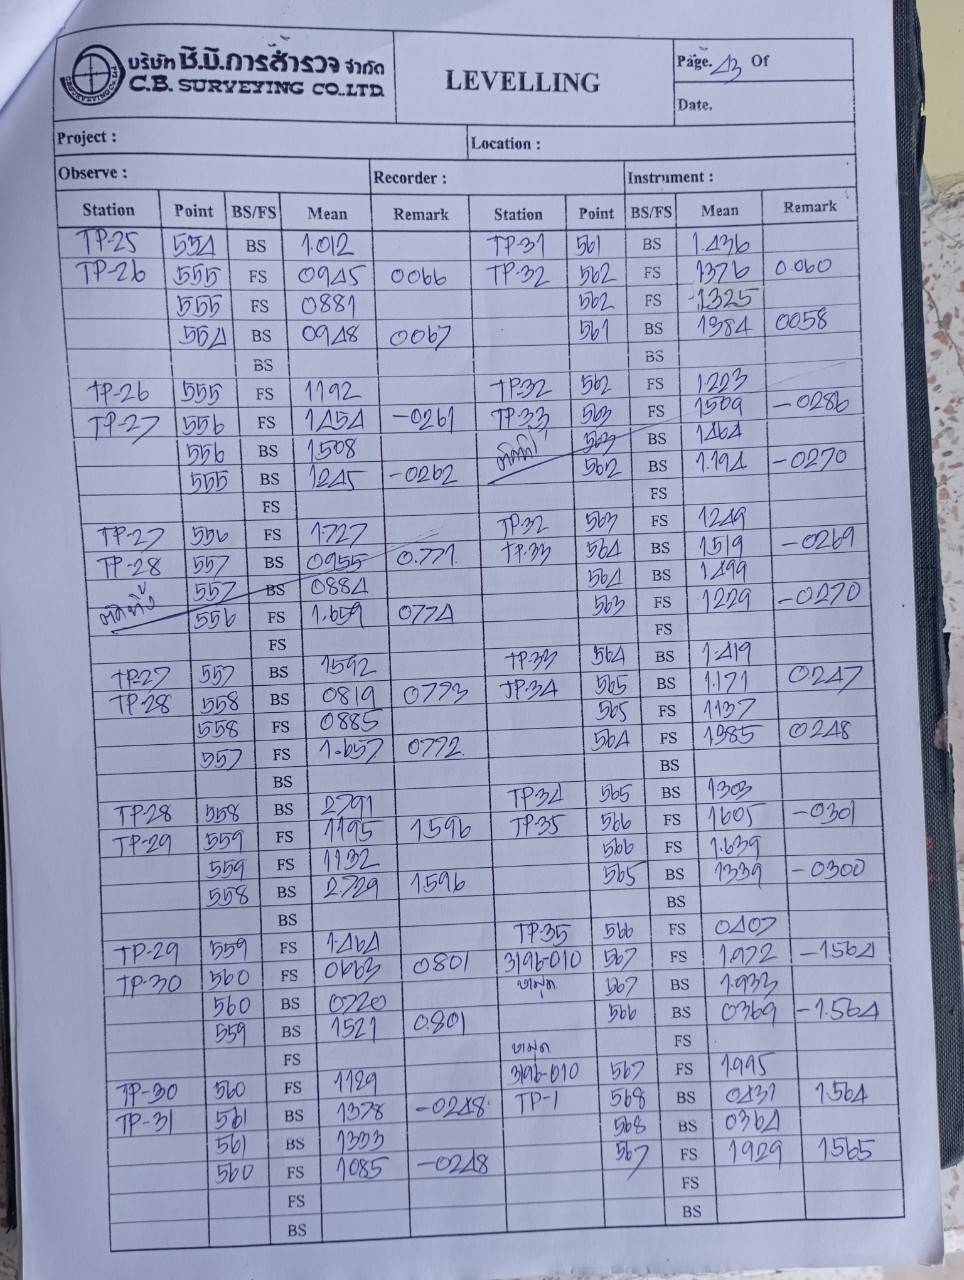 บริษัท ซี.บี.การสำรวจ จำกัด
C.B. SURVEYING CO.,LTD
LEVELLING
Page. 43 Of
Date.
Project :
Location :
Observe :
Recorder :
Instrument :
Station Point BS/FS Mean Remark Station Point BS/FS Mean Remark
TP-25 554 BS 1.012 TP-31 561 BS 1.436
TP-26 555 FS 0945 0066 TP-32 562 FS 1376 0.060
555 FS 0881 562 FS 1325
554 BS 0948 0067 561 BS 1384 0058
BS BS
TP-26 555 FS 1192 TP-32 562 FS 1.223
TP-27 556 FS 1454 -0261 TP-33 563 FS 1509 -0286
556 BS 1.508 ตัดทิ้ง 563 BS 1464
555 BS 1245 -0262 562 BS 1.194 -0270
FS FS
TP-27 556 FS 1.727 TP-32 563 FS 1249
TP-28 557 BS 0955 0.771 TP-33 564 BS 1.519 -0269
ตัดทิ้ง 557 BS 0884 564 BS 1499
556 FS 1.659 0774 563 FS 1229 -0270
FS FS
TP-27 557 BS 1592 TP-33 564 BS 1.419
TP-28 558 BS 0819 0773 TP-34 565 BS 1.171 0247
558 FS 0885 565 FS 1137
557 FS 1.657 0772 564 FS 1385 0248
BS BS
TP-28 558 BS 2791 TP34 565 BS 1303
TP-29 559 FS 1195 1.596 TP-35 566 FS 1605 -0301
559 FS 1132 566 FS 1.639
558 BS 2.729 1596 565 BS 1339 -0300
BS BS
TP-29 559 FS 1.464 TP.35 566 FS 0407
TP-30 560 FS 0663 0801 3196-010 567 FS 1.972 -1564
560 BS 0720 หมุด 567 BS 1.933
559 BS 1521 0.801 566 BS 0369 -1.564
FS หมุด FS
TP-30 560 FS 1129 3196-010 567 FS 1.995
TP-31 561 BS 1378 -0248 TP-1 568 BS 0431 1.564
561 BS 1333 568 BS 0364
560 FS 1085 -0248 567 FS 1929 1.565
FS FS
BS BS